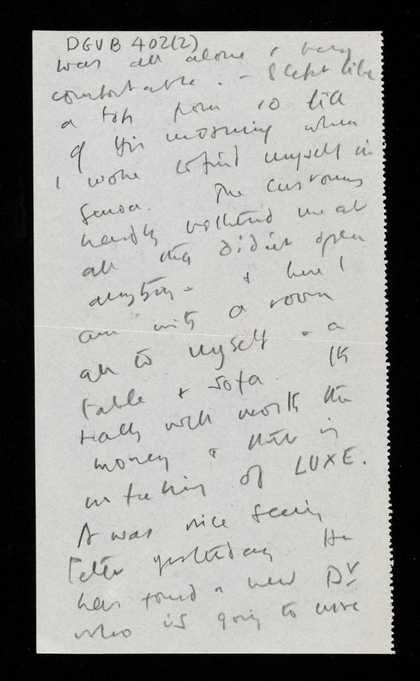 DGVB 402(2)
was all alone & very
comfortable. - Slept like
a top from 10 till
9 this morning when
I woke to find myself in
Genoa. The customs
hardly bothered me at
all they didn't open
anything - & here I
am with a room
all to myself - a
table & sofa. Its
really well worth the
money & this is
feeling of LUXE.
It was nice seeing
Peter yesterday He
has found a new Dr
who is going to cure